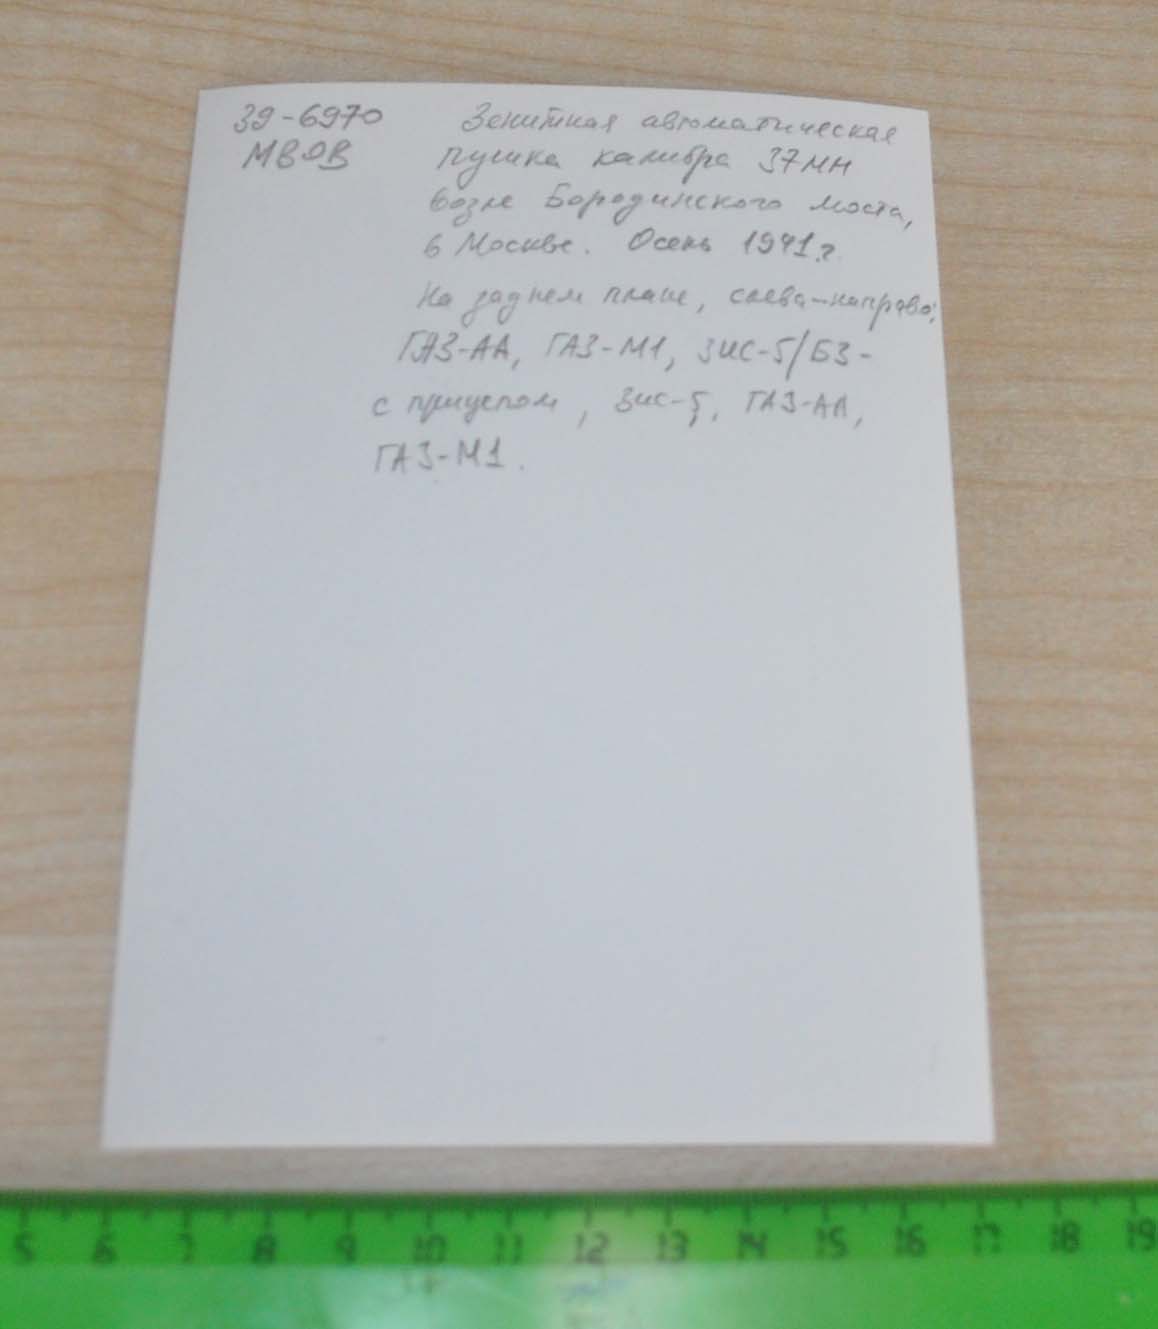 39-6970
МВОВ
Зенитная автоматическая
пушка калибра 37мм
возле Бородинского моста,
в Москве. Осень 1941г.
На заднем плане, слева-направо:
ГАЗ-АА, ГАЗ-М1, ЗИС-5/БЗ-
с прицепом, ЗИС-5, ГАЗ-АА,
ГАЗ-М1.
5 6 7 8 9 10 11 12 13 14 15 16 17 18 19